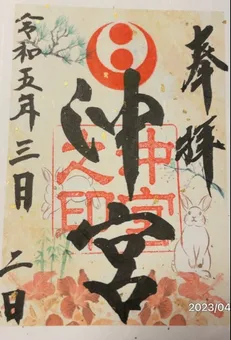 奉拝
沖宮
沖宮
之印
令和五年三月二日
2023/04